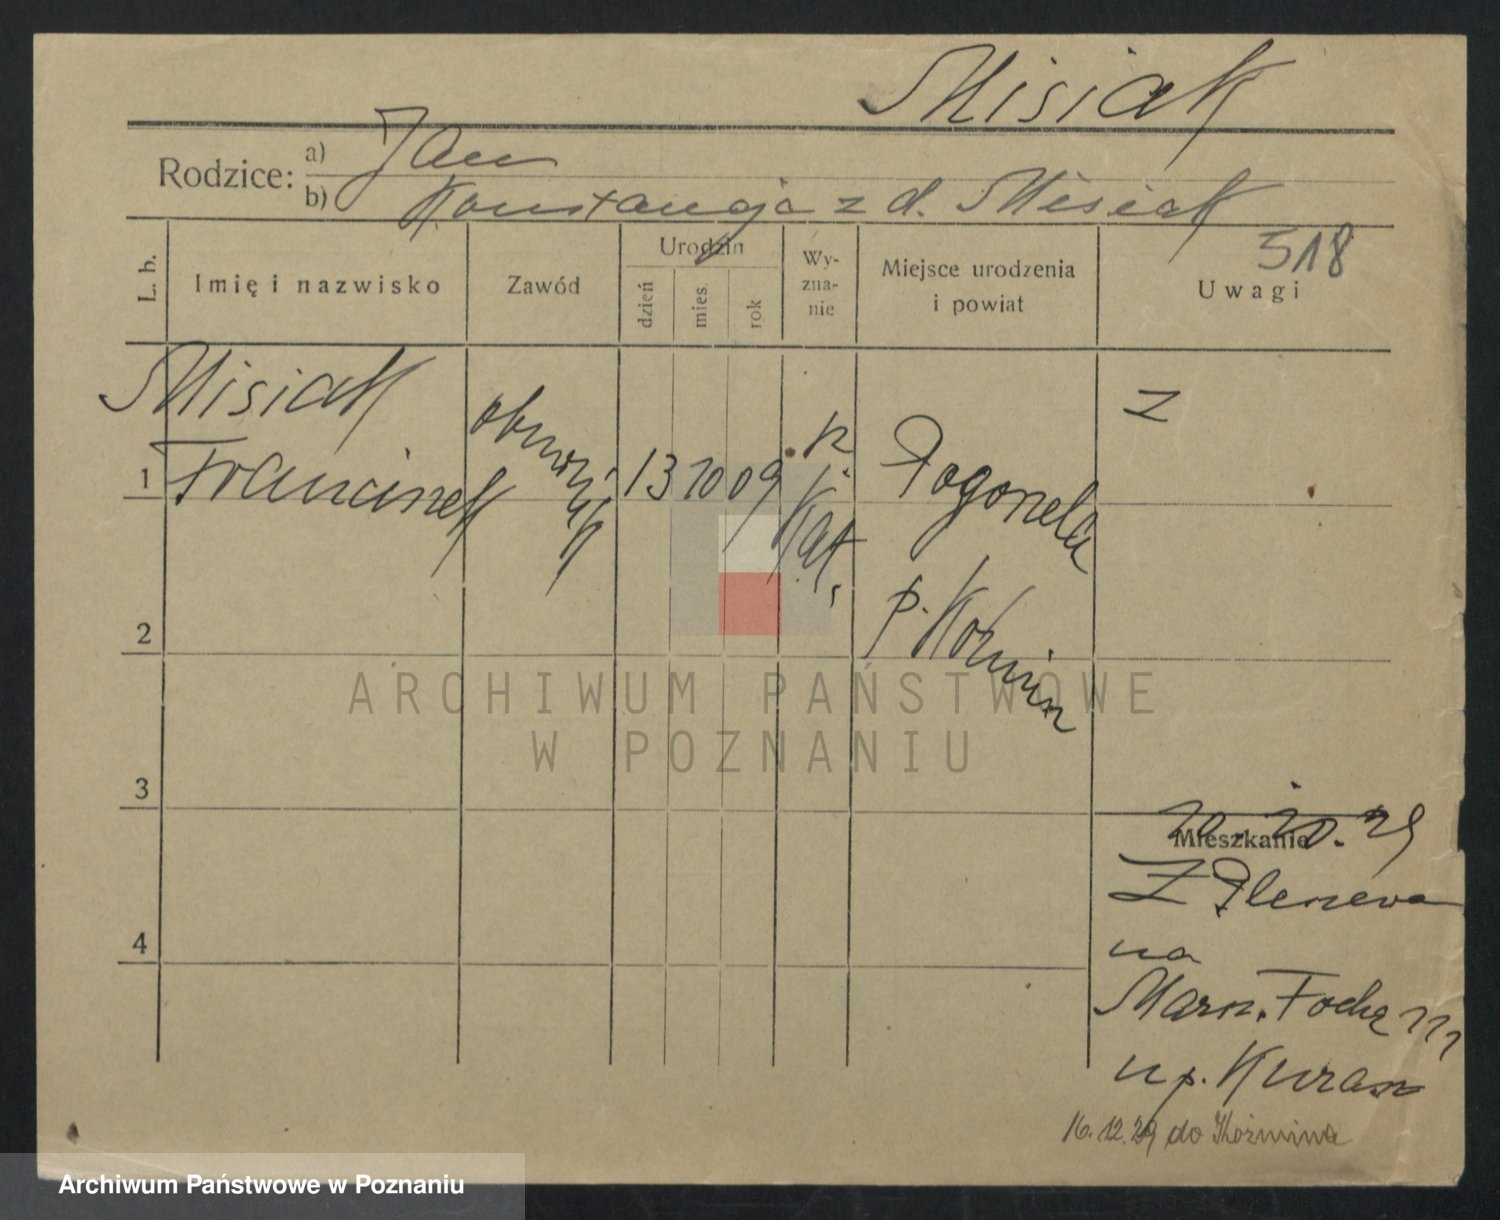 Misiak
Rodzice: a) Jan
b) Konstancja z d. Misiak
518
L. b.
Imię i nazwisko
Zawód
Urodzin
dzień
mies.
rok
Wy-
zna-
nie
Miejsce urodzenia
i powiat
Uwagi
Misiak
1 Franciszek
13 10 09
rz
kat.
Pogorzela
p. Koźmin
z
2
3
4
Mieszkanie
20.10.29
Z Pleszewa
na
Marsz. Focha 111
up. Kurasz
16.12.29 do Koźmina
ARCHIWUM PAŃSTWOWE
W POZNANIU
Archiwum Państwowe w Poznaniu